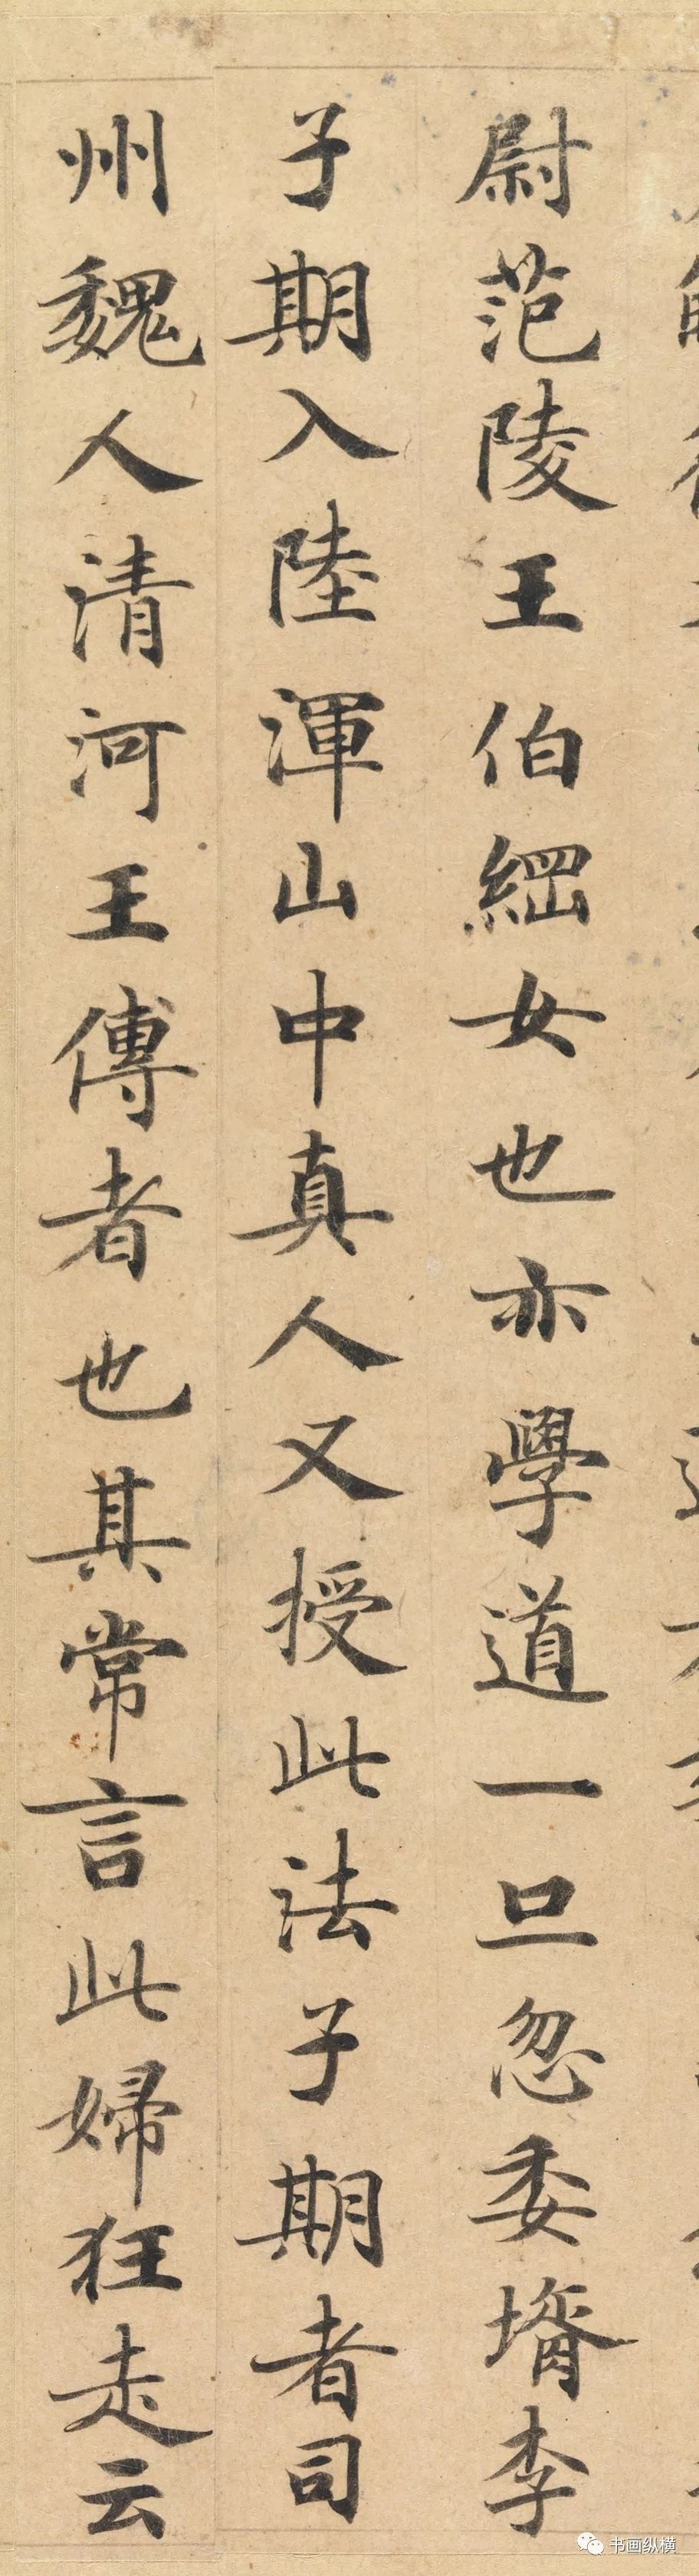 尉范陵王伯綱女也亦學道一旦忽委壻李
子期入陸渾山中真人又授此法子期者司
州魏人清河王傅者也其常言此婦狂走云
书画纵横